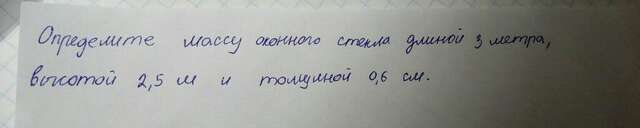 Определите массу оконного стекла длиной 3 метра,
высотой 2,5 м и толщиной 0,6 см.